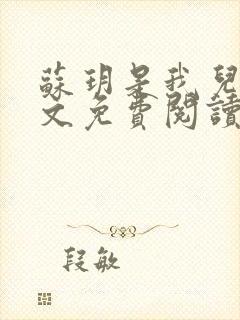 蘇玥是我兒
文免費閱讀
段敏